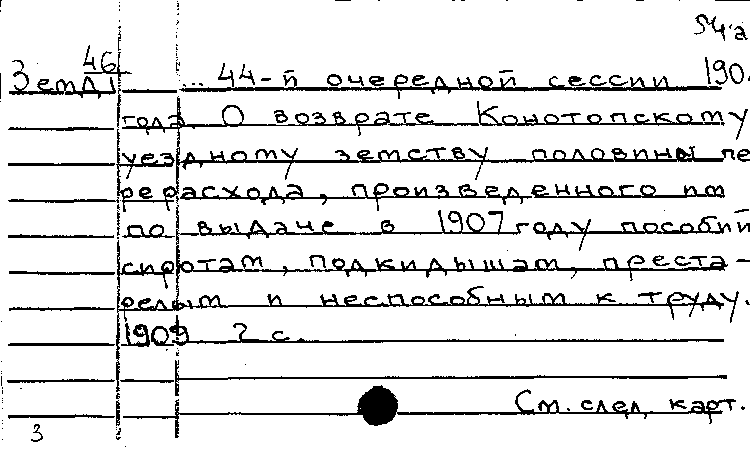 54.2
46
Зем Д1 ... 44-й очередной сессии 190
года. О возврате Конотопскому
уездному земству половины пе
рерасхода, произведенного им
по выдаче в 1907 году пособий
сиротам, подкидышам, преста-
релым и неспособным к труду.
1909 2 с.
См. след. карт.
3